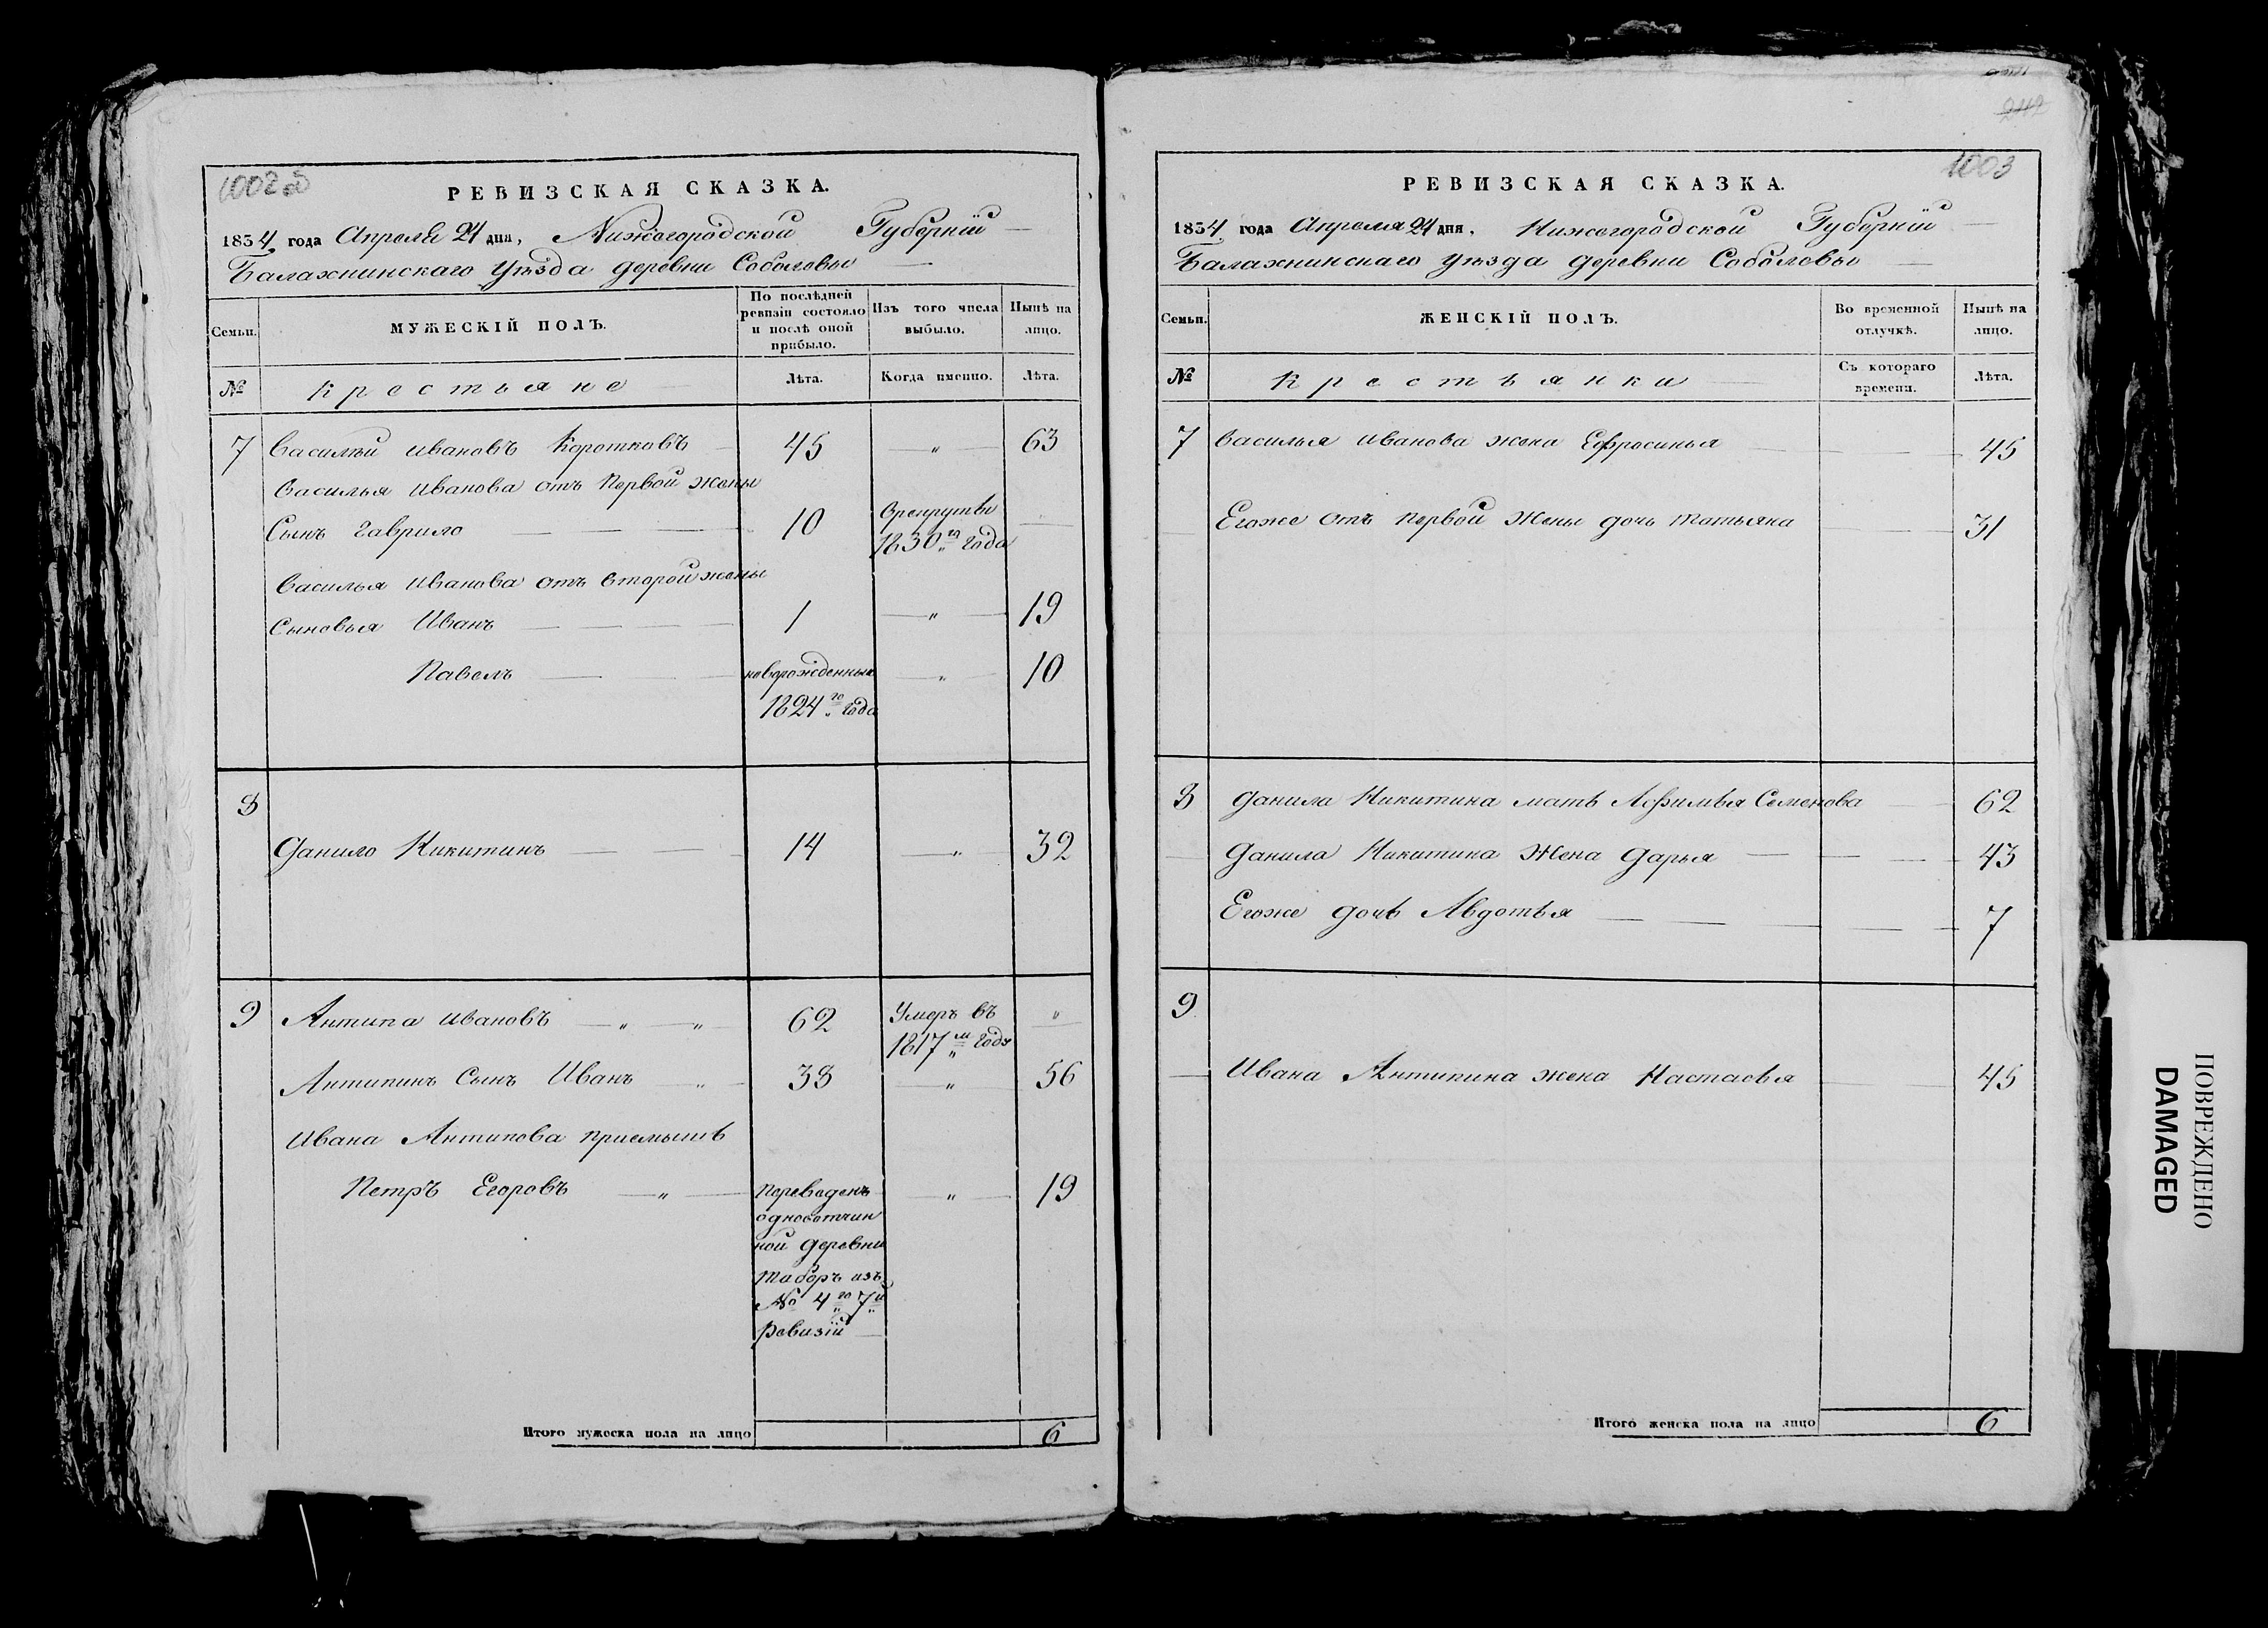 1002 об
РЕВИЗСКАЯ СКАЗКА.
1834 года Апреля 24 дня, Нижегородской Губерніи
Балахнинскаго Уѣзда деревни Соболовы
Семьи.
МУЖЕСКІЙ ПОЛЪ.
По послѣдней
ревизіи состояло
и послѣ оной
прибыло.
Изъ того числа
выбыло.
Нынѣ на
лицо.
№
Крестьяне
Лѣта.
Когда именно.
Лѣта.
7 Василий ивановъ Коротковъ 45 " 63
Василья иванова отъ первой жены
Сынъ Гаврило 10 Врекрутви
1830го года
Василья иванова отъ второй жены
Сыновья Иванъ 1 " 19
Павелъ новорожденный " 10
1824го года
8
Данило Никитинъ 14 " 32
9 Антипа ивановъ " " 62 Умеръ въ "
1817м году
Антипинъ Сынъ Иванъ " 38 " 56
Ивана Антипова приемышъ
Петръ Егоровъ " Переведенъ " 19
одновотчин
ной деревни
Таборъ изъ
№ 4го 7й
Ревизіи
Итого мужеска пола на лицо 6
1003
РЕВИЗСКАЯ СКАЗКА.
1834 года Апреля 24 дня, Нижегородской Губерніи
Балахнинскаго уѣзда деревни Соболовы
Семьи.
ЖЕНСКІЙ ПОЛЪ.
Во временной
отлучкѣ.
Нынѣ на
лицо.
№
Крестьянки
Съ котораго
времени.
Лѣта.
7 Василья Иванова жена Ефросинья 45
Егоже отъ первой жены дочь татьяна 31
8 Данила Никитина мать Афимья Семенова 62
Данила Никитина Жена Дарья 43
Егоже дочь Авдотья 7
9
Ивана Антипина жена Настасья 45
Итого женска пола на лицо 6
ПОВРЕЖДЕНО
DAMAGED